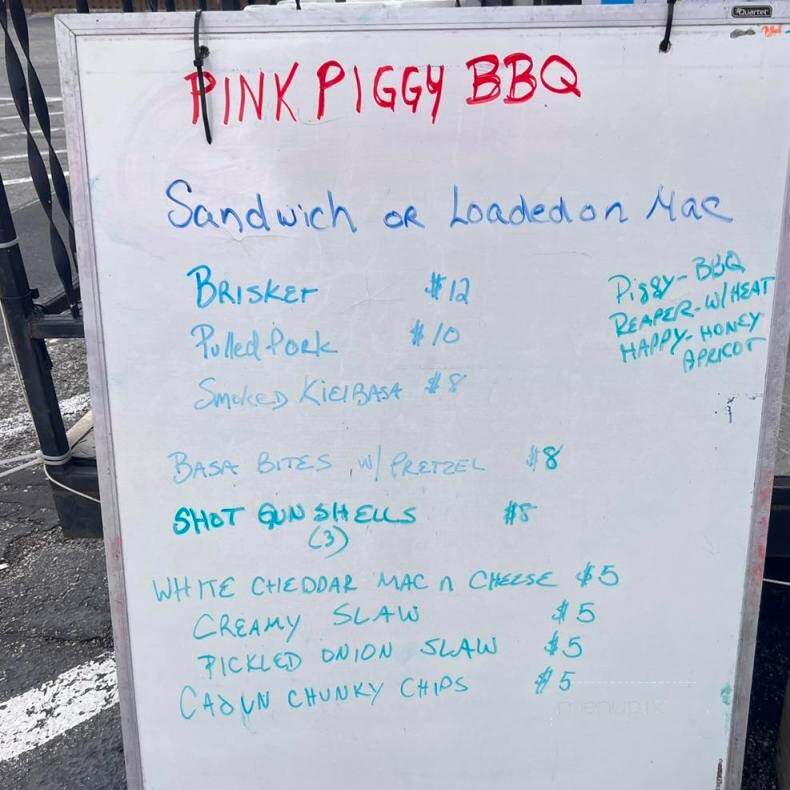 Quartet
PINK PIGGY BBQ
Sandwich OR Loaded on Mac
BRISKET $12
Pulled Pork $10
Smoked KielBASA $8
Piggy - BBQ
REAPER - W/HEAT
HAPPY - HONEY
APRICOT
BASA BITES W/ PRETZEL $8
SHOT GUN SHELLS $8
(3)
WHITE CHEDDAR MAC n CHEESE $5
CREAMY SLAW $5
PICKLED ONION SLAW $5
CAJUN CHUNKY CHIPS $5